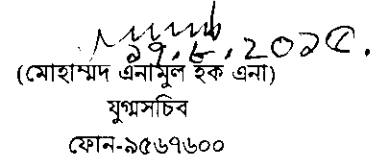 ১৭.৮.২০১৫.
(মোহাম্মদ এনামুল হক এনা)
যুগ্মসচিব
ফোন-৯৫৬৭৬০০